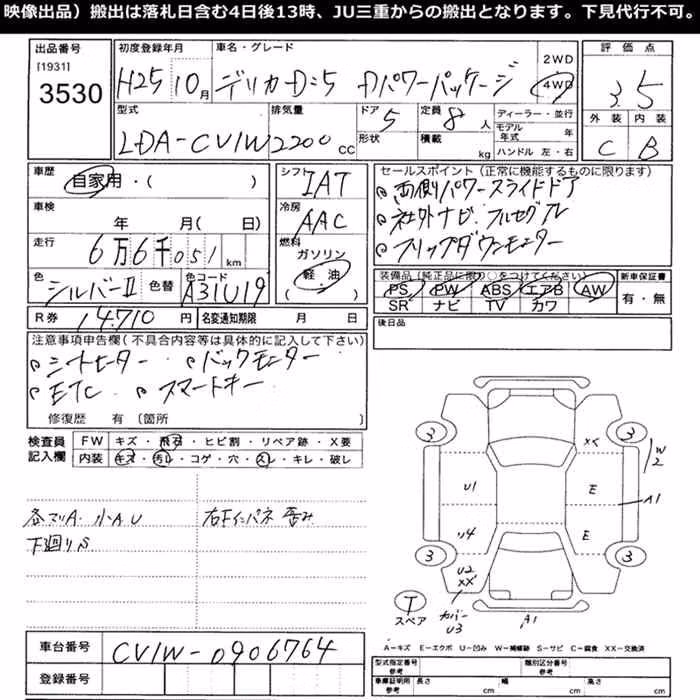 映像出品）搬出は落札日含む4日後13時、JU三重からの搬出となります。下見代行不可。
出品番号 [1931] 3530
初度登録年月 H25 10月
車名・グレード デリカD:5 Dパワーパッケージ
2WD 4WD
評価点 3.5
外装 C 内装 B
型式 LDA-CV1W
排気量 2200 cc
ドア 5 形状
定員 8人 積載 kg
ディーラー・並行
モデル年式 年
ハンドル 左・右
車歴 自家用・( )
シフト IAT
セールスポイント（正常に機能するものに限ります）
両側パワースライドドア
社外ナビ フルセグTV
フリップダウンモニター
車検 年 月( 日)
冷房 AAC
走行 6万6千051 km
燃料 ガソリン 軽油 ( ・ )
色 シルバーII 色替 色コード A31U19
装備品（純正品に限り○をつけてください）
PS PW ABS エアB AW
SR ナビ TV カワ
新車保証書 有・無
R券 14710 円 名変通知期限 月 日
後日品
注意事項申告欄（不具合内容等は具体的に記入して下さい）
シートヒーター バックモニター
ETC スマートキー
修復歴 有 〔箇所 〕
検査員記入欄
FW キズ・飛石・ヒビ割・リペア跡・X要
内装 キズ・汚レ・コゲ・穴・スレ・キレ・破レ
各マリA. 小AU
下廻りS
右Fインパネ 歪み
3 3 XX W2
U1 E A1
U4 E
3 3
U2 XX
T スペア
カバー U3
A1
A－キズ E－エクボ U－凹み W－補修跡 S－サビ C－腐食 XX－交換済
車台番号 CV1W-0906764
登録番号
型式指定番号 参考 類別区分番号 参考
車庫証明用 参考 長さ cm 幅 cm 高さ cm